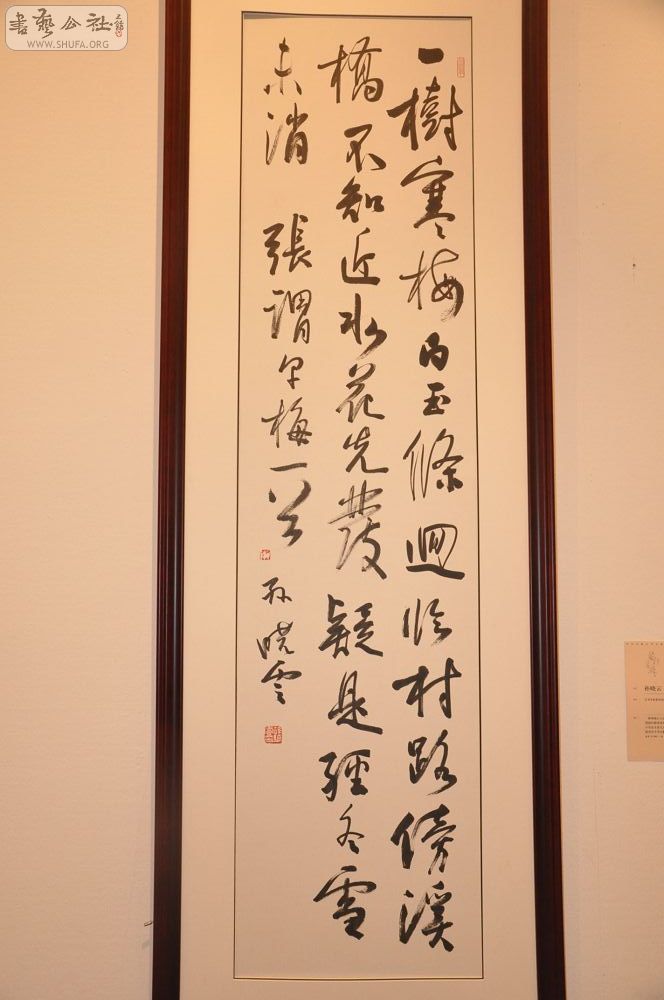 一樹寒梅白玉條迥臨村路傍溪
橋不知近水花先發疑是經冬雪
未消 張謂早梅一首
孫曉雲
書藝公社
WWW.SHUFA.ORG
孙晓云